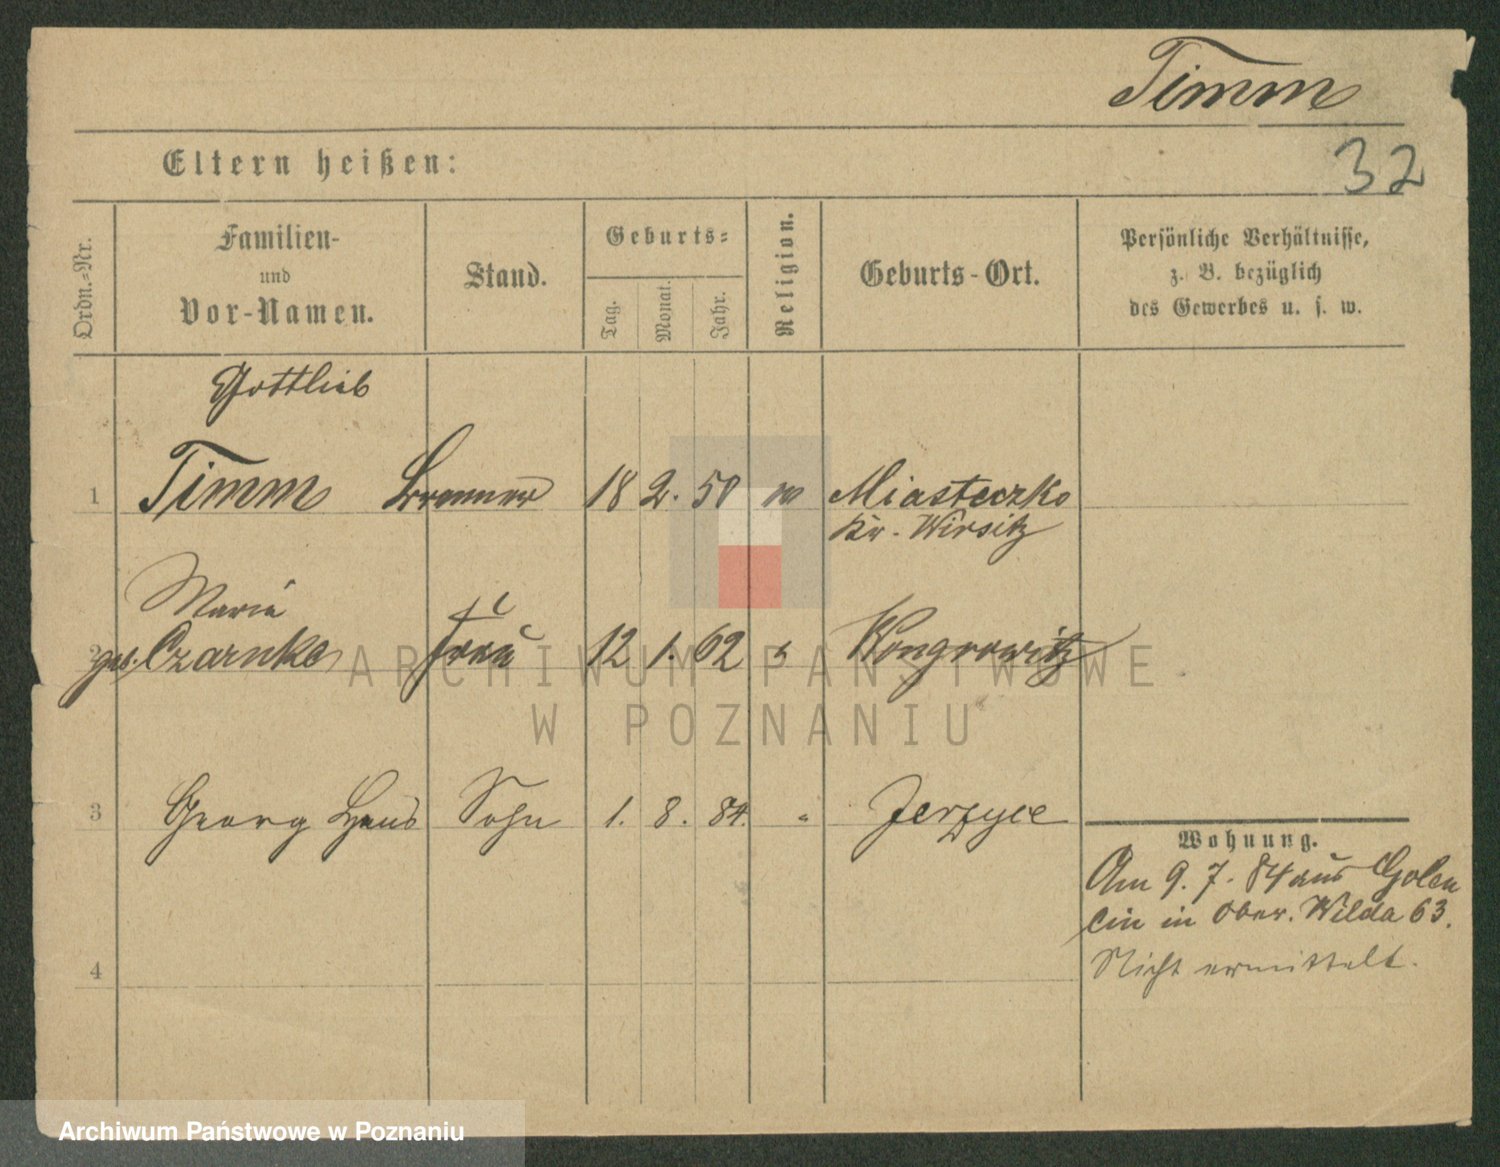 Timm
Eltern heißen:
32
Ordn.-Nr.
Familien-
und
Vor-Namen.
Stand.
Geburts-
Tag.
Monat.
Jahr.
Religion.
Geburts-Ort.
Persönliche Verhältnisse,
z. B. bezüglich
des Gewerbes u. s. w.
Gottlieb
1 Timm Brenner 18 2. 50 Miasteczko
Kr. Wirsitz
Maria
2 geb. Czarnke Frau 12 1. 62 Wongrowitz
3 Georg Hans Sohn 1. 8. 84. " Jerzyce
Wohnung.
Am 9. 7. 84 aus Golen
cin in Ober. Wilda 63.
Nicht ermittelt.
4
ARCHIWUM PAŃSTWOWE
W POZNANIU
Archiwum Państwowe w Poznaniu